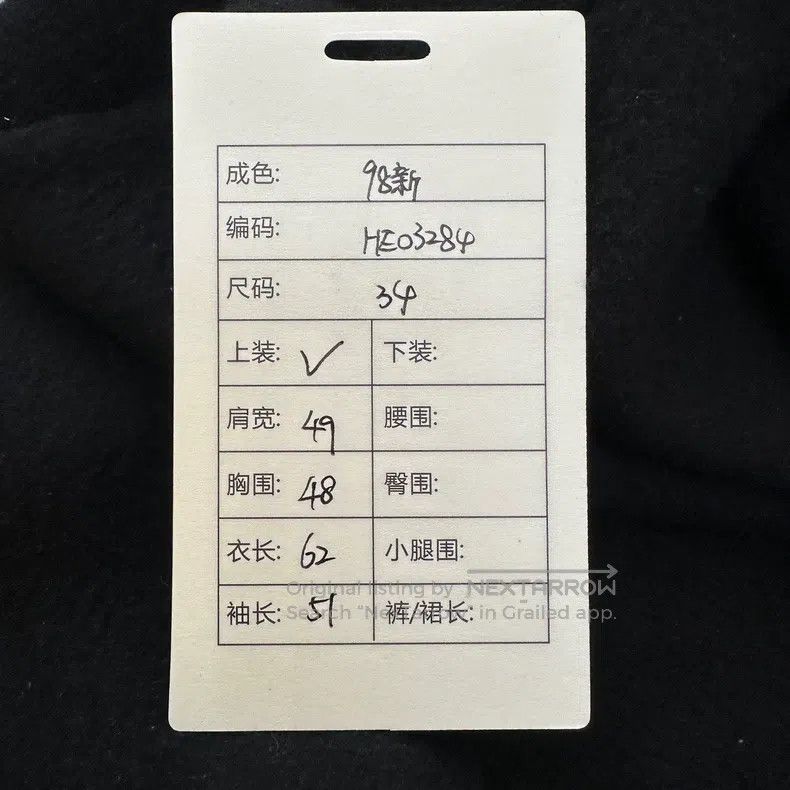 成色: 98新
编码: HE03284
尺码: 34
上装: ✓ 下装:
肩宽: 49 腰围:
胸围: 48 臀围:
衣长: 62 小腿围:
Original listing by NEXTARROW
袖长: 51 裤/裙长:
Search "Nextarrow" in Grailed app.